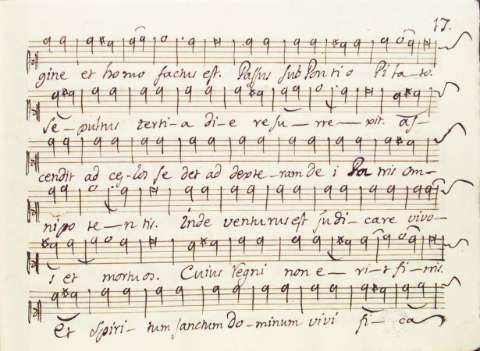 17.
gine et homo factus est. Passus sub Pontio Pi la - to.
se - pultus terti - a di - e resu - rre - xit. as-
cendit ad cę - los se det ad dexte - ram de i Pa tris om-
nipo te - n tis. Inde venturus est judi - care vivo-
s et mortuos. Cuius Regni non e - ri - t fi - nis.
Et Spiri - tum sanctum Do - minum vivi fi - ca